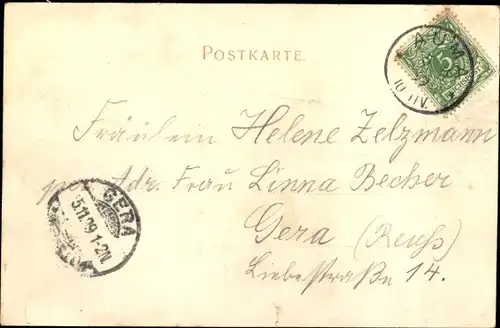 POSTKARTE.
AUMA
10-11V.
5
Fräulein Helene Zelzmann
per Adr. Frau Linna Becher
GERA
5.11.99 1-2N.
Gera (Reuß)
Liebestraße 14.